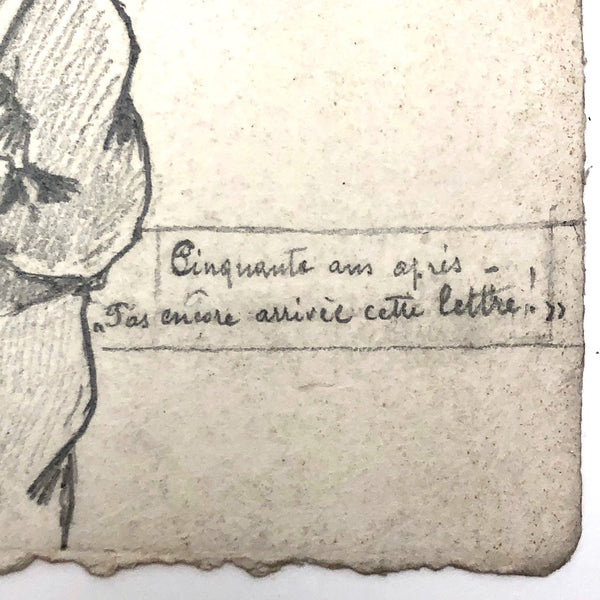 Cinquante ans après –
„Pas encore arrivée cette lettre! »